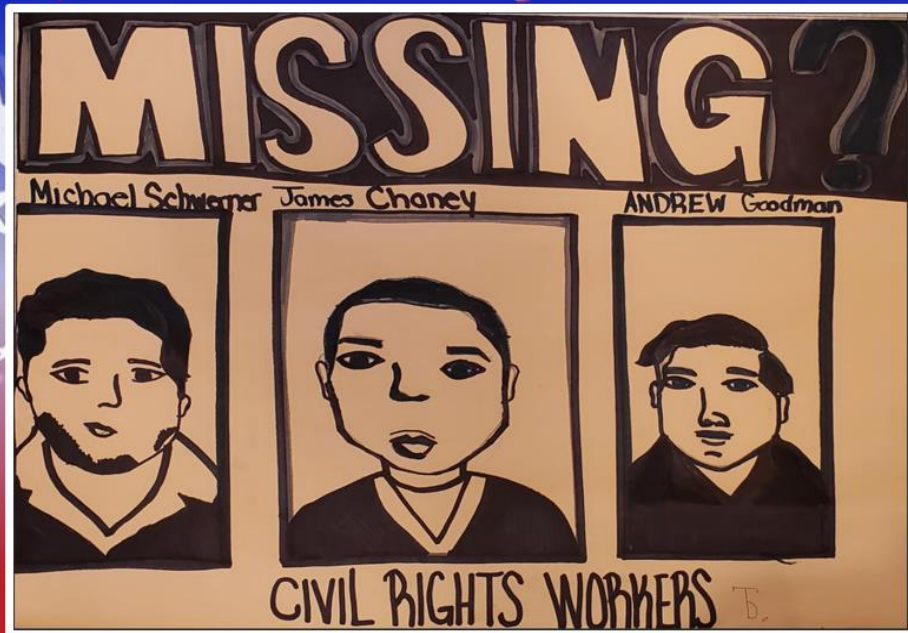 MISSING?
Michael Schwerner James Chaney ANDREW Goodman
CIVIL RIGHTS WORKERS TB.